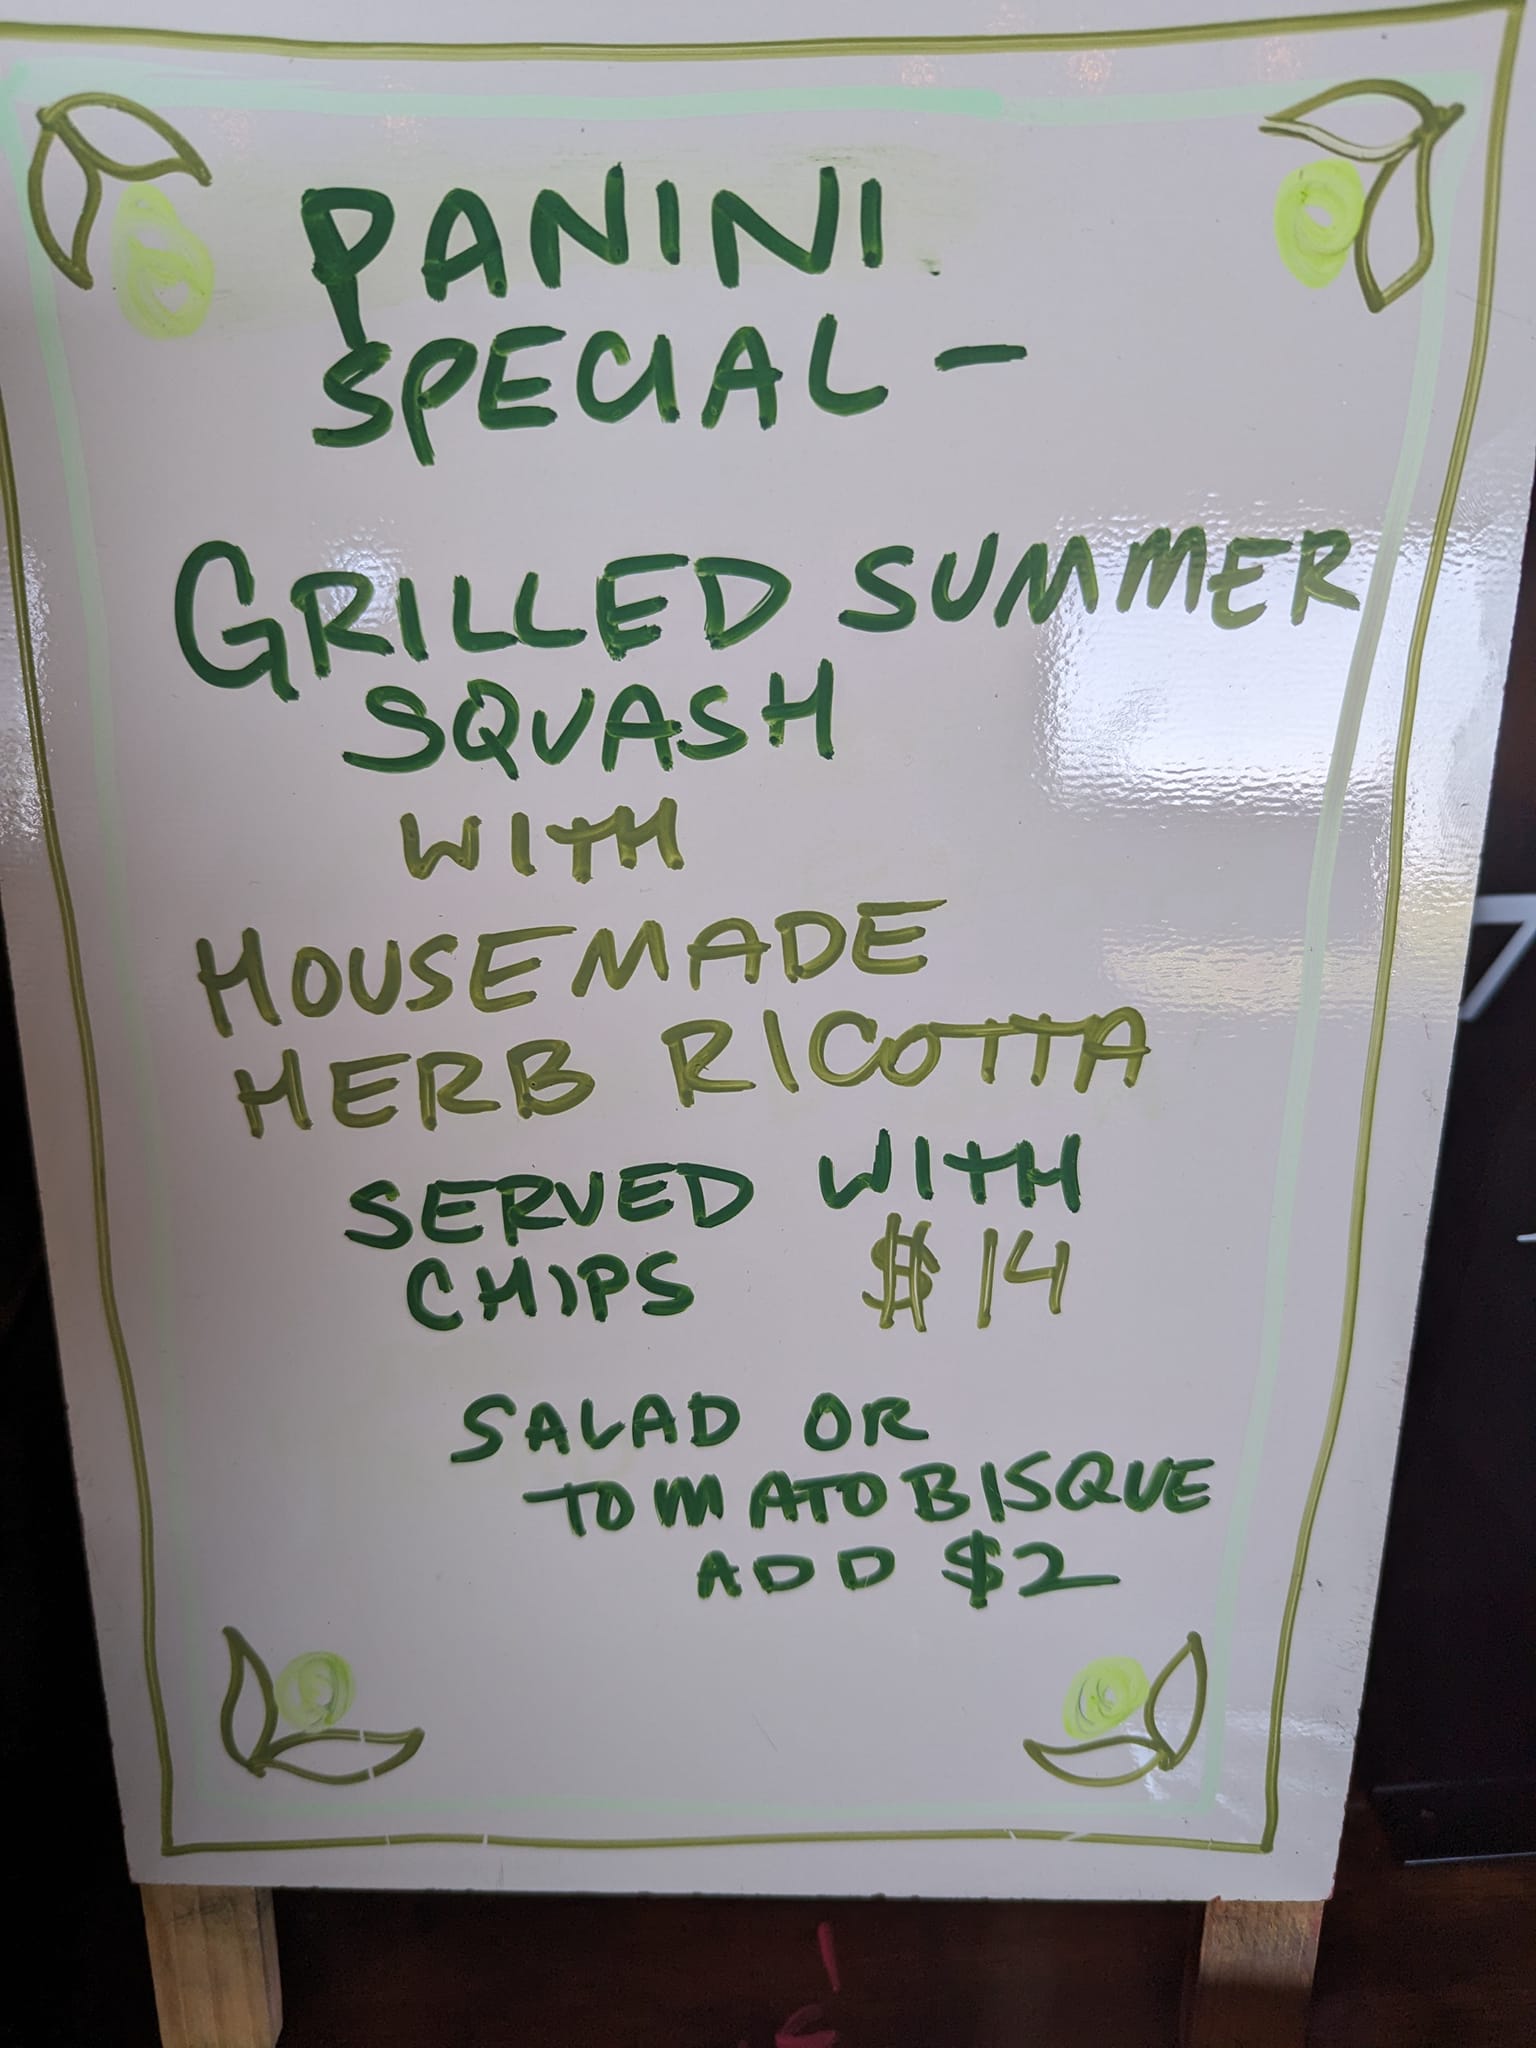 PANINI
SPECIAL -
GRILLED SUMMER
SQUASH
WITH
HOUSEMADE
HERB RICOTTA
SERVED WITH
CHIPS $14
SALAD OR
TOMATO BISQUE
ADD $2